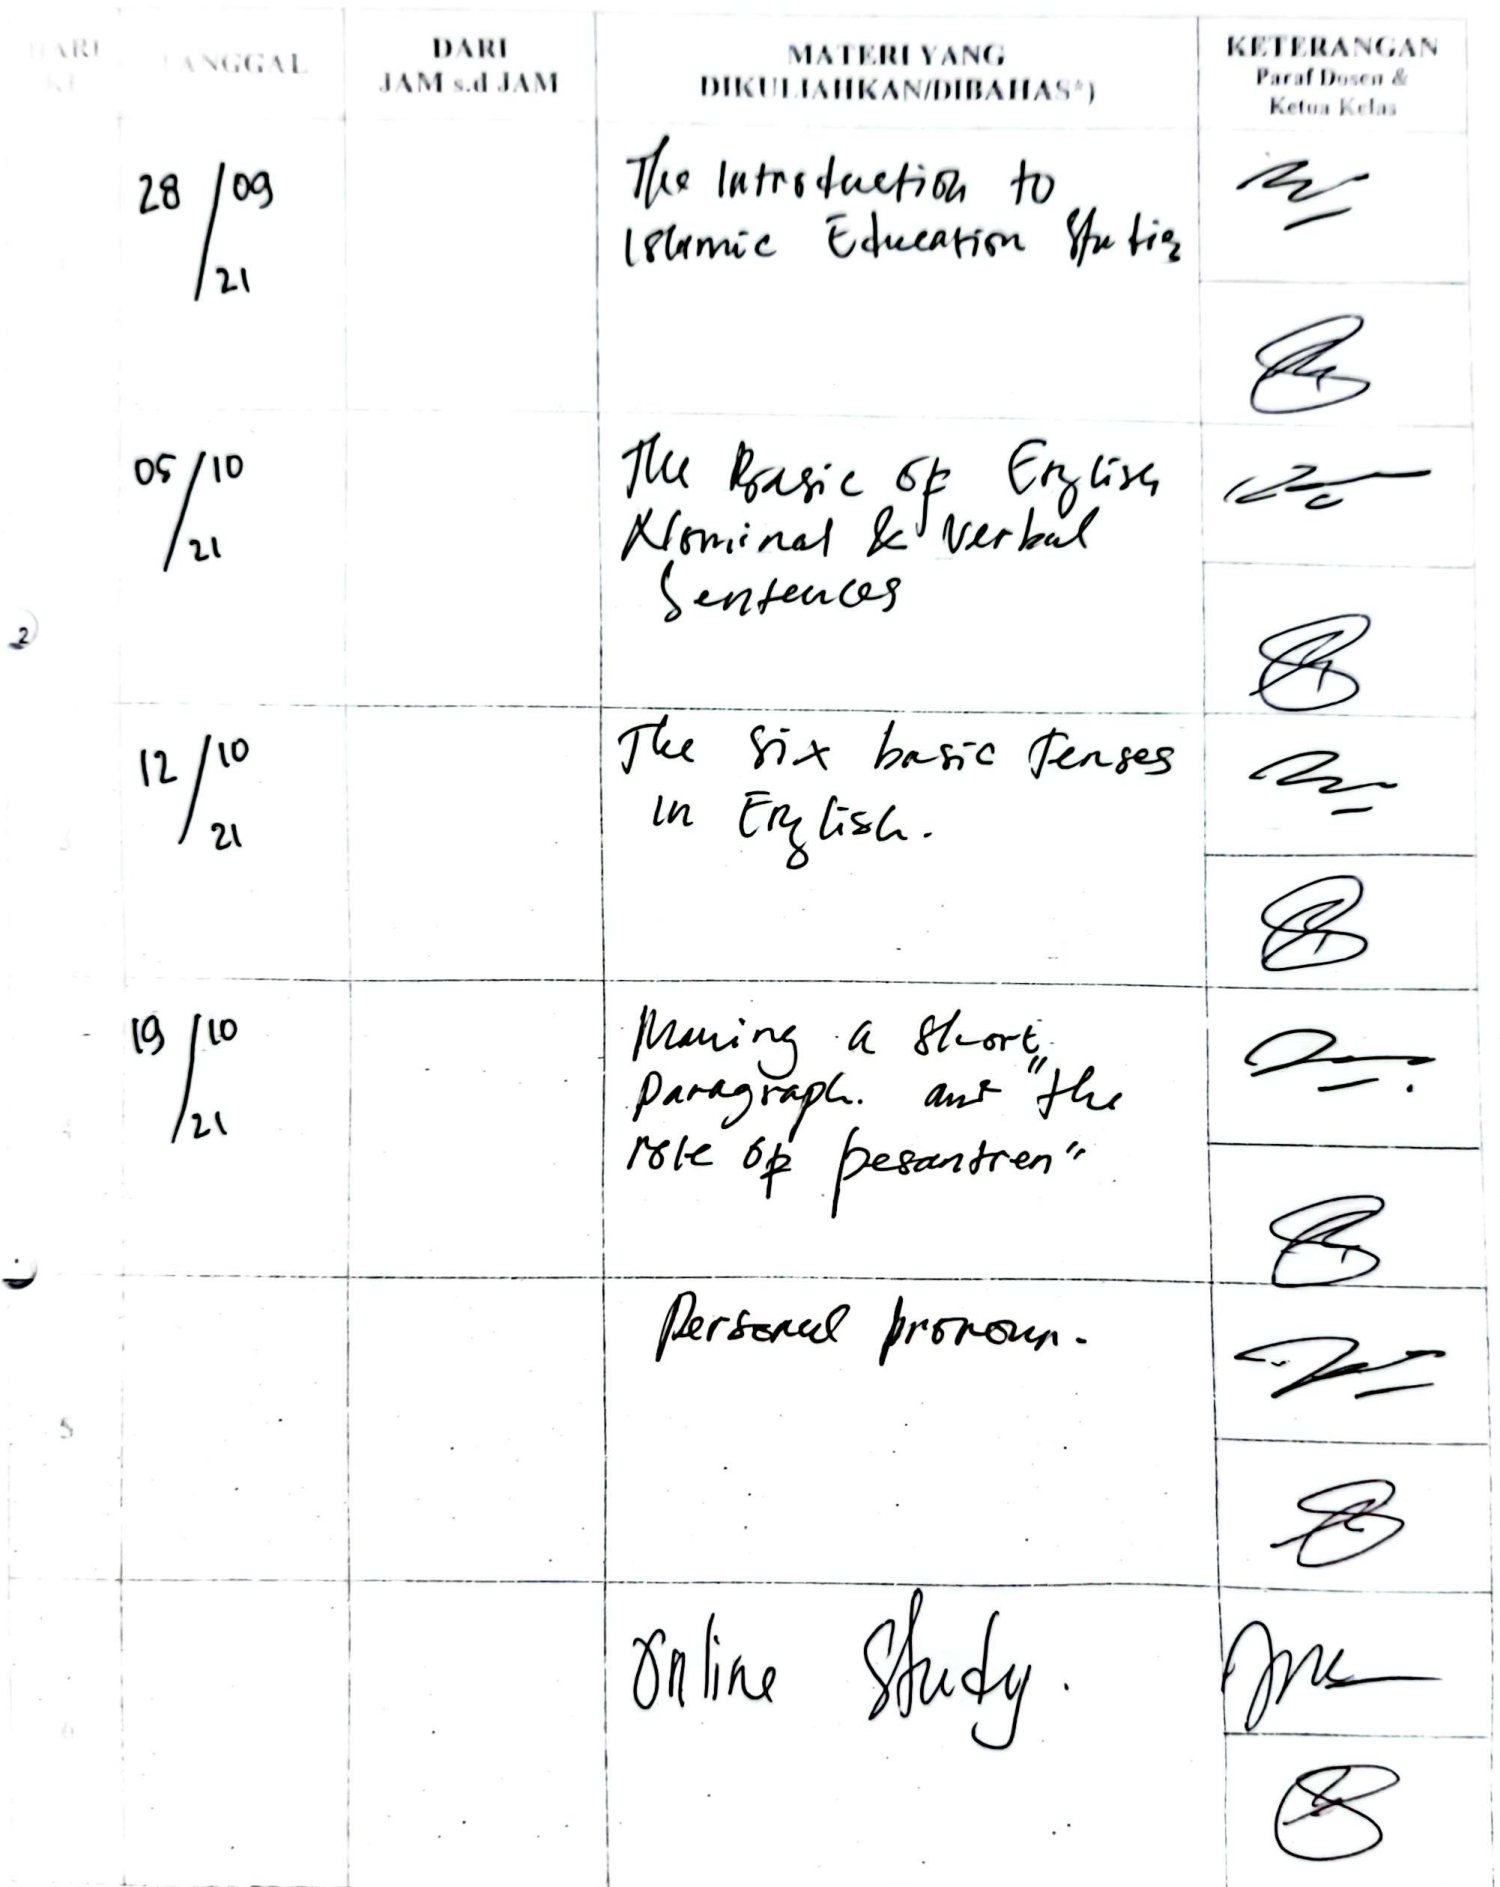 HARI TANGGAL DARI MATERI YANG KETERANGAN
KE JAM s.d JAM DIKULIAHKAN/DIBAHAS*) Paraf Dosen &
Ketua Kelas
28/09/21 The Introduction to
Islamic Education Studies
2 05/10/21 The Basic of English
Nominal & Verbal
Sentences
3 12/10/21 The six basic Tenses
in English.
4 19/10/21 Making a short
paragraph. and "the
role of pesantren"
5 Personal pronoun.
6 Online Study.